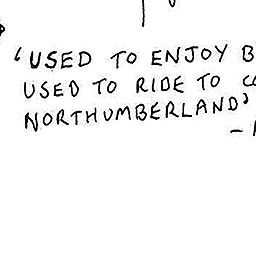 'USED TO ENJOY
USED TO RIDE TO
NORTHUMBERLAND'
-